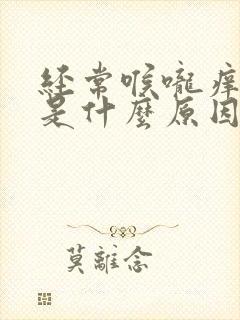 经常喉嚨痒
是什麼原因
莫離念